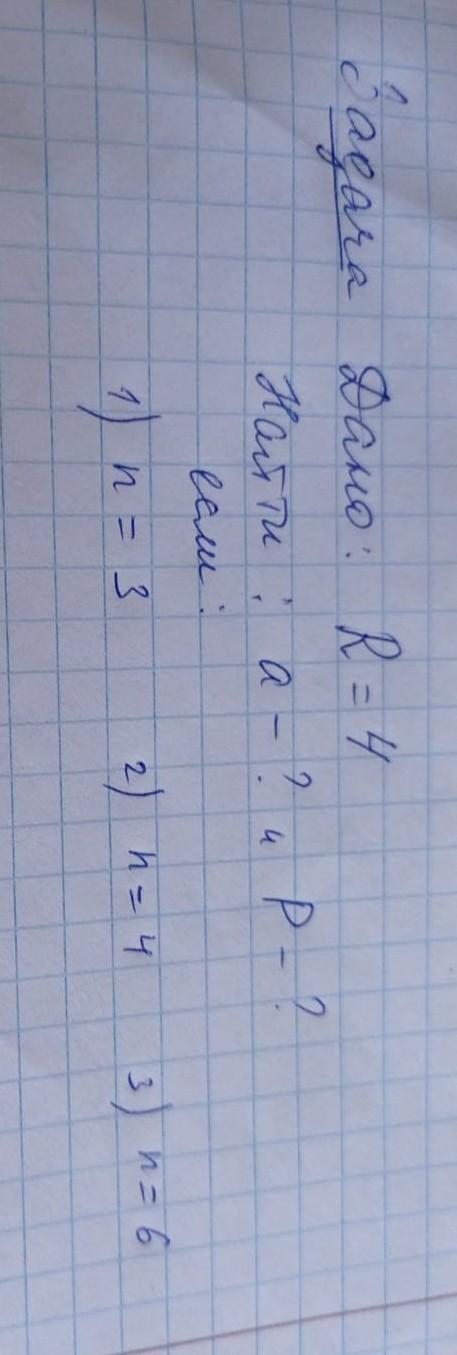 Задача Дано: R = 4
Найти: a - ? и P - ?
если:
1) n = 3 2) n = 4 3) n = 6